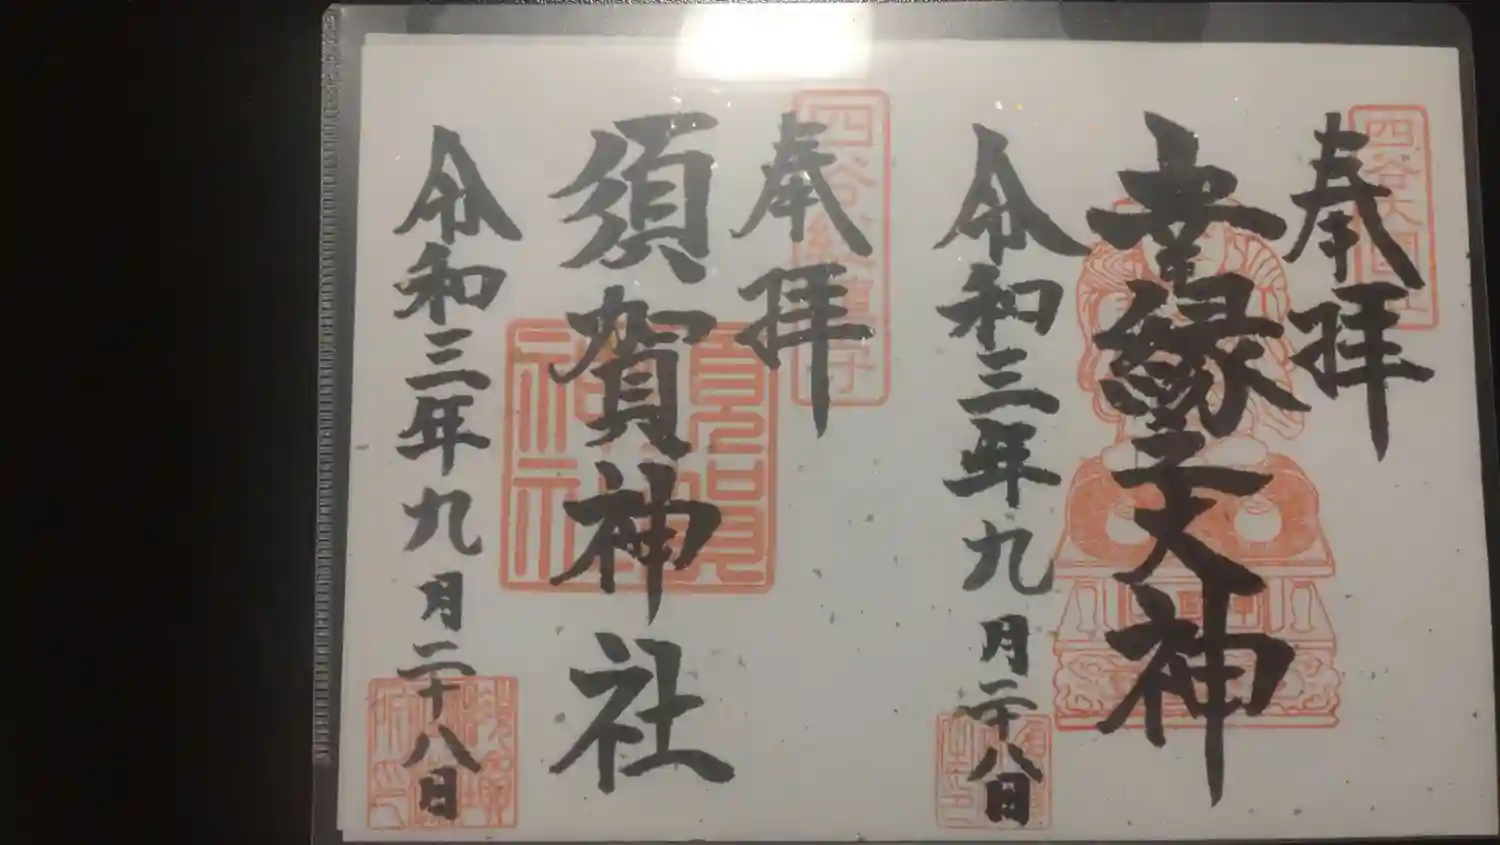 四谷大國主
奉拝
幸縁天神
令和三年九月二十八日
四谷総鎮守
奉拝
須賀神社
須賀神社
令和三年九月二十八日